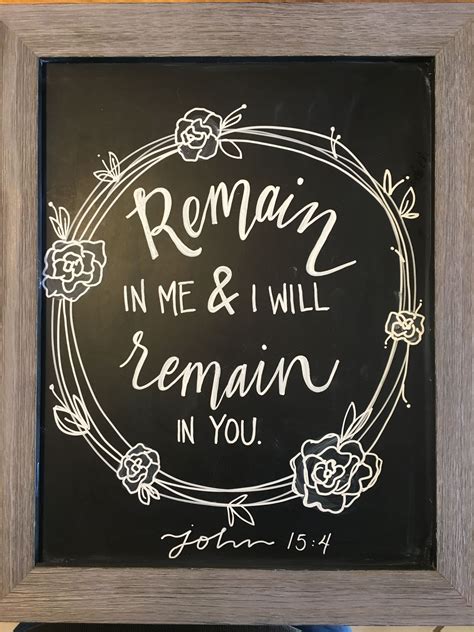 Remain
IN ME & I WILL
remain
IN YOU.
john 15:4